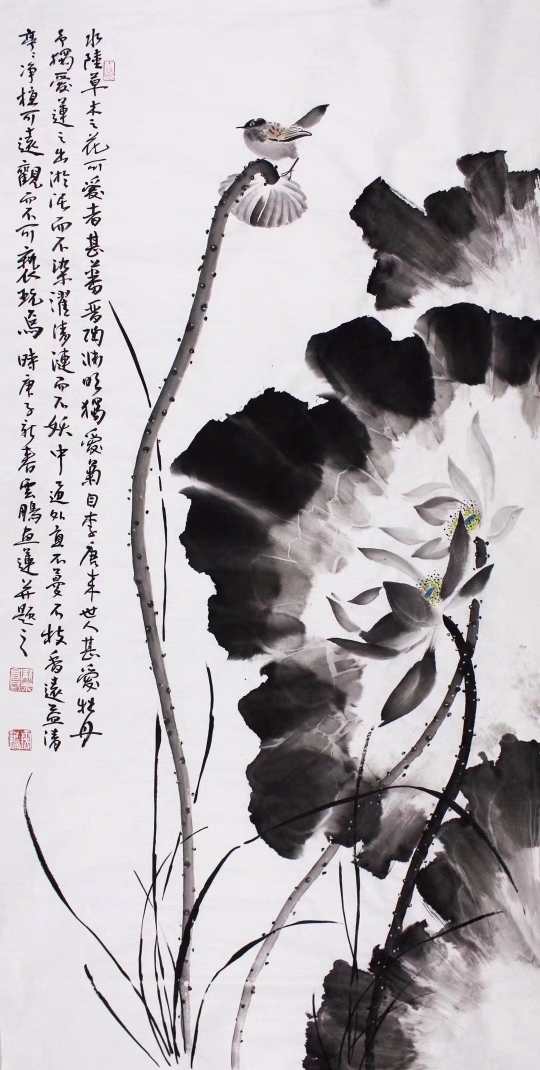 水陸草木之花可愛者甚蕃晋陶渊明獨愛菊自李唐来世人甚愛牡丹
予獨愛蓮之出淤泥而不染濯清漣而不妖中通外直不蔓不枝香遠益清
亭亭净植可遠觀而不可褻玩焉時庚子新春雲鵬畫蓮并題之